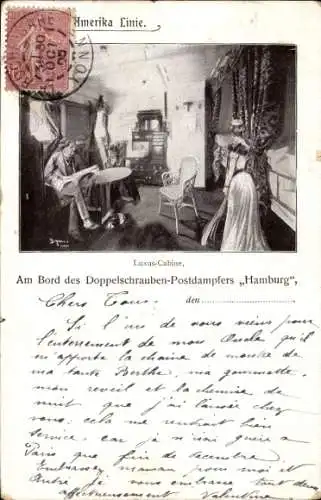 Amerika Linie.
Luxus-Cabine.
Am Bord des Doppelschrauben-Postdampfers „Hamburg“,
den
Chers Tous.
Si l'un de vous viens pour
l'enterrement de mon oncle qu'il
m'apporte la chaine de montre de
ma tante Berthe, ma gourmette,
mon reveil et la chemise de
nuit que j'ai laissée chez
vous; cela me rendrait bien
service. car je n'irai guère a
Paris que fin decembre.
Embrassez maman pour moi et
je vous embrasse tout
affectueusement Valentine